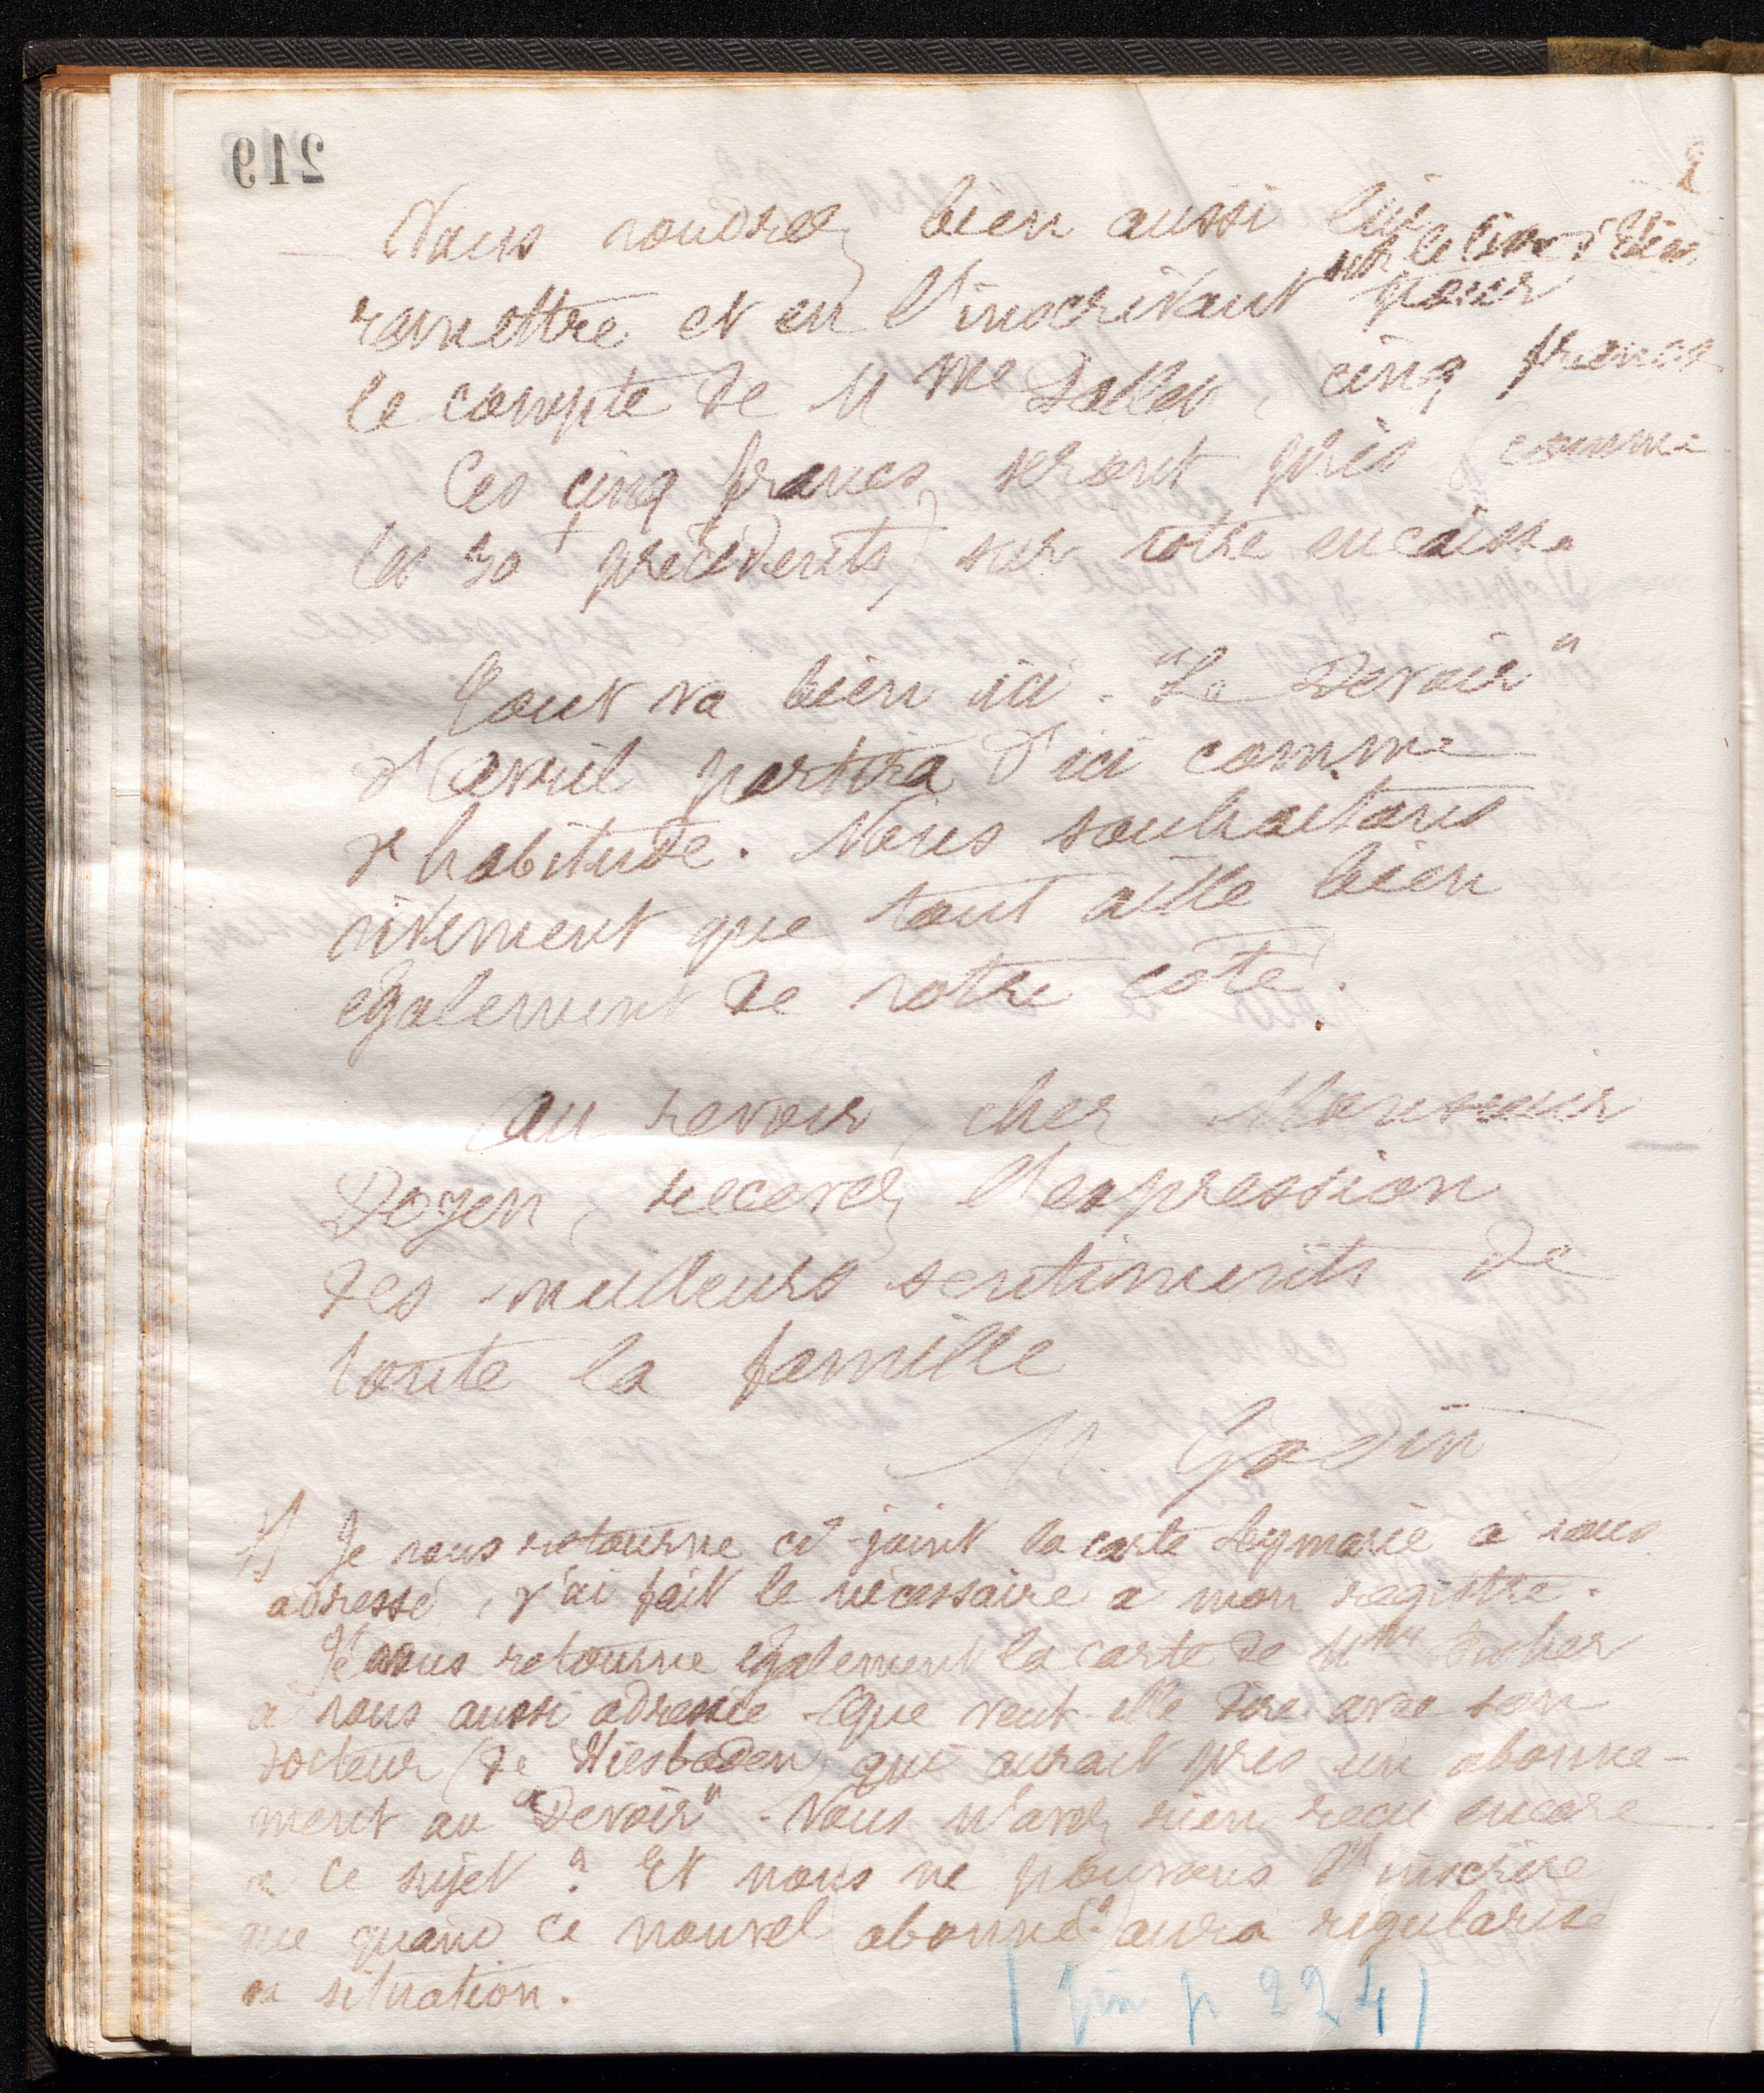 219
2
Vous voudrez bien aussi lui
remettre et en l'inscrivant sur le livre pour
le compte de Mme Sallet, cinq francs
Ces cinq francs seront pris (comme
les 20f précédents) sur votre encaisse
Tout va bien ici. "Le Devoir"
d'avril partira d'ici comme
d'habitude. Nous souhaitons
vivement que tout aille bien
également de votre côté.
Au revoir, cher Monsieur
Doyen, recevez l'expression
des meilleurs sentiments de
toute la famille
M. Godin
Je vous retourne ci-joint la carte Leymarie à vous
adressé, j'ai fait le nécessaire à mon registre.
Je vous retourne également la carte de Mme
à vous aussi adressée - Que veut-elle dire avec son
docteur (de Wiesbaden) qui aurait pris un abonne-
ment au "Devoir" - Vous n'avez rien reçu encore
à ce sujet ? Et nous ne pouvons l'inscrire
que quand ce nouvel (abonné ?) aura régularisé
sa situation.
(fin p 224)